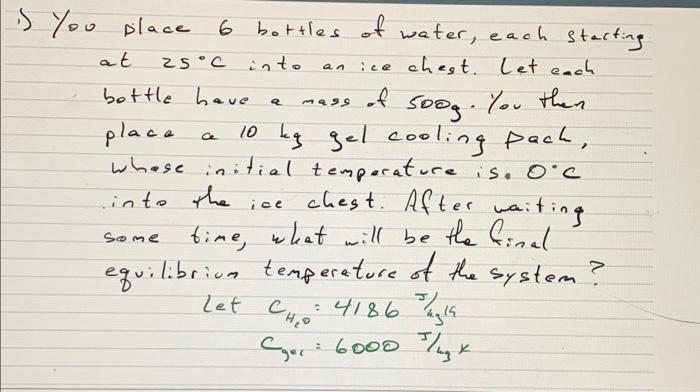 1) You place 6 bottles of water, each starting
at 25°C into an ice chest. Let each
bottle have a mass of 500g. You then
place a 10 kg gel cooling pack,
whose initial temperature is 0°C
into the ice chest. After waiting
some time, what will be the final
equilibrium temperature of the system?
Let C_H₂O : 4186 J/kg K
C_gel : 6000 J/kg K